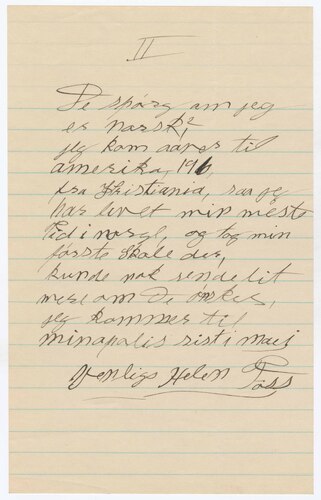 II
De spörg om jeg
er norsk?
jeg kom aaver til
amerika, 1916
fra Khristiania, saa jeg
har levet min meste
tid i norge, og tog min
förste Skole der,
kunde nok sende lit
mere om De ønsker,
jeg kommer til
minapolis sist i maij
Venligs Helen Foss